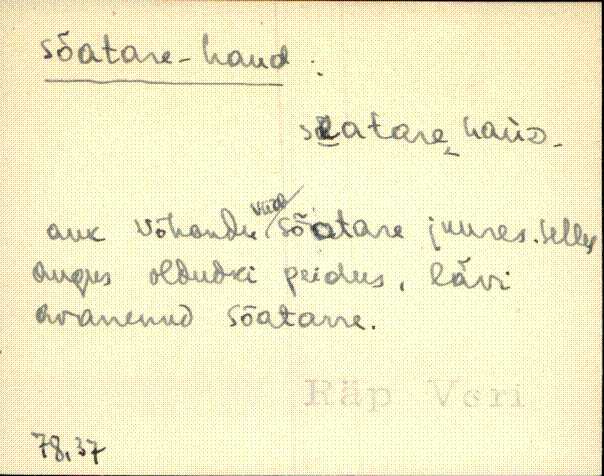 sõatare-haud.
sɛatare‿haùᴅ.
auk Võhandu viid sõatare juures. Selles
augus oldudki peidus, lävi
avanenud sõatarre.
Räp Veri
78,37